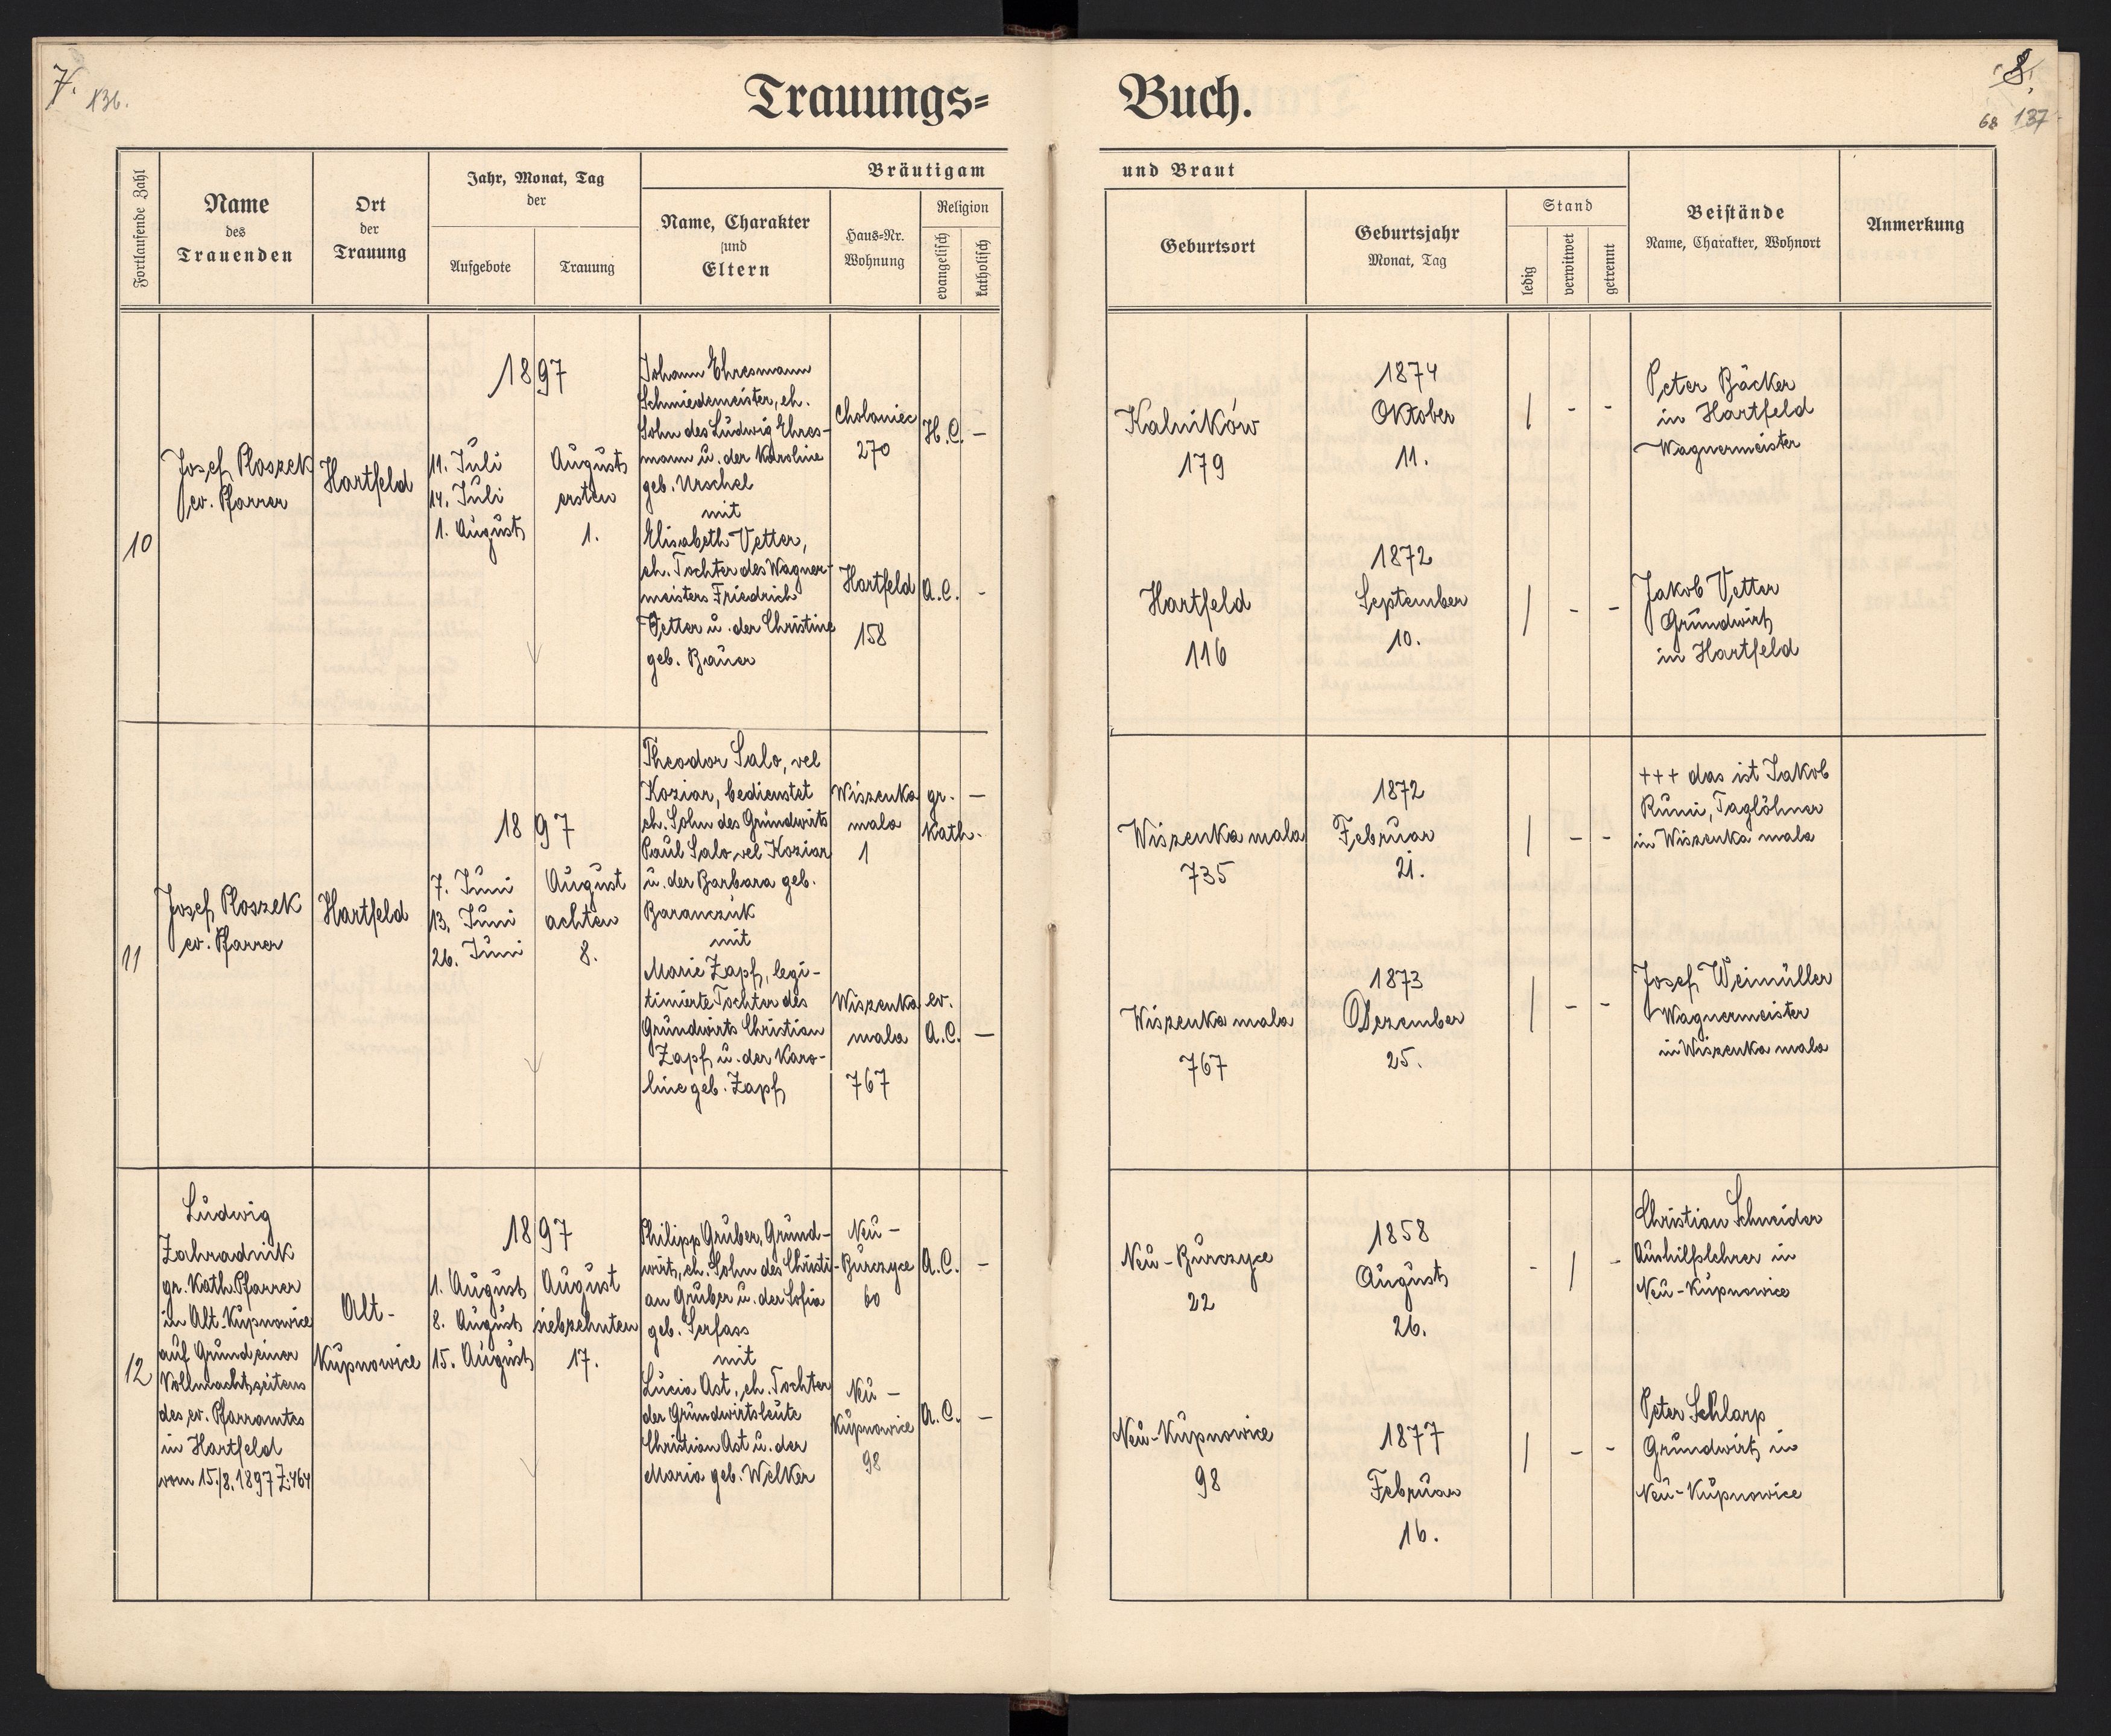 7.
136.
8.
68 137
Trauungs= Buch.
Fortlaufende Zahl
Name
des
Trauenden
Ort
der
Trauung
Jahr, Monat, Tag
der
Aufgebote
Trauung
Bräutigam und Braut
Name, Charakter
und
Eltern
Haus=Nr.
Wohnung
Religion
evangelisch
katholisch
Geburtsort
Geburtsjahr
Monat, Tag
Stand
ledig
verwitwet
getrennt
Beistände
Name, Charakter, Wohnort
Anmerkung
10
Josef Ploszek
ev. Pfarrer
Hartfeld
1897
11. Juli
14. Juli
1. August
August
ersten
1.
Johann Ehresmann
Schmiedemeister, eh.
Sohn des Ludwig Ehres-
mann u. der Karoline
geb. Urschel
mit
Elisabeth Vetter,
eh. Tochter des Wagner-
meisters Friedrich
Vetter u. der Christine
geb. Bauer
Cholaniec
270
H.C. -
Hartfeld
158
A.C. -
Kalników
179
Hartfeld
116
1874
Oktober
11.
1872
September
10.
/ - -
/ - -
Peter Bäcker
in Hartfeld
Wagnermeister
Jakob Vetter
Grundwirt
in Hartfeld
11
Josef Ploszek
ev. Pfarrer
Hartfeld
1897
7. Juni
13. Juni
26. Juni
August
achten
8.
Theodor Salo, vel
Koziar, bedienstet
eh. Sohn des Grundwirts
Paul Salo vel Koziar
u. der Barbara geb.
Baranczuk
mit
Marie Zapf, legi-
timierte Tochter des
Grundwirts Christian
Zapf u. der Karo-
line geb. Zapf
Wiszenka
mala
1
gr. -
kath.
Wiszenka
mala
767
ev.
A.C. -
Wiszenka mala
735
Wiszenka mala
767
1872
Februar
21.
1873
Dezember
25.
/ - -
/ - -
+++ das ist Jakob
Rumi, Taglöhner
in Wiszenka mala
Josef Weimüller
Wagnermeister
in Wiszenka mala
12
Ludwig
Zahradnik
gr. kath. Pfarrer
in Alt-Kupnowice
auf Grund einer
Vollmacht seitens
des ev. Pfarramtes
in Hartfeld
vom 15./8. 1897 Z:464
Alt-
Kupnowice
1897
1. August
8. August
15. August
August
siebzehnten
17.
Philipp Gruber, Grund-
wirt, eh. Sohn des Christi-
an Gruber u. der Sofia
geb. Serfass
mit
Lucia Ast, eh. Tochter
der Grundwirtsleute
Christian Ast u. der
Maria geb. Welker
Neu-
Burczyce
60
A.C. -
Neu-
Kupnowice
98
A.C. -
Neu-Burczyce
22
Neu-Kupnowice
98
1858
August
26.
1877
Februar
16.
- / -
/ - -
Christian Schneider
Aushilfslehrer in
Neu-Kupnowice
Peter Schlarp
Grundwirt in
Neu-Kupnowice